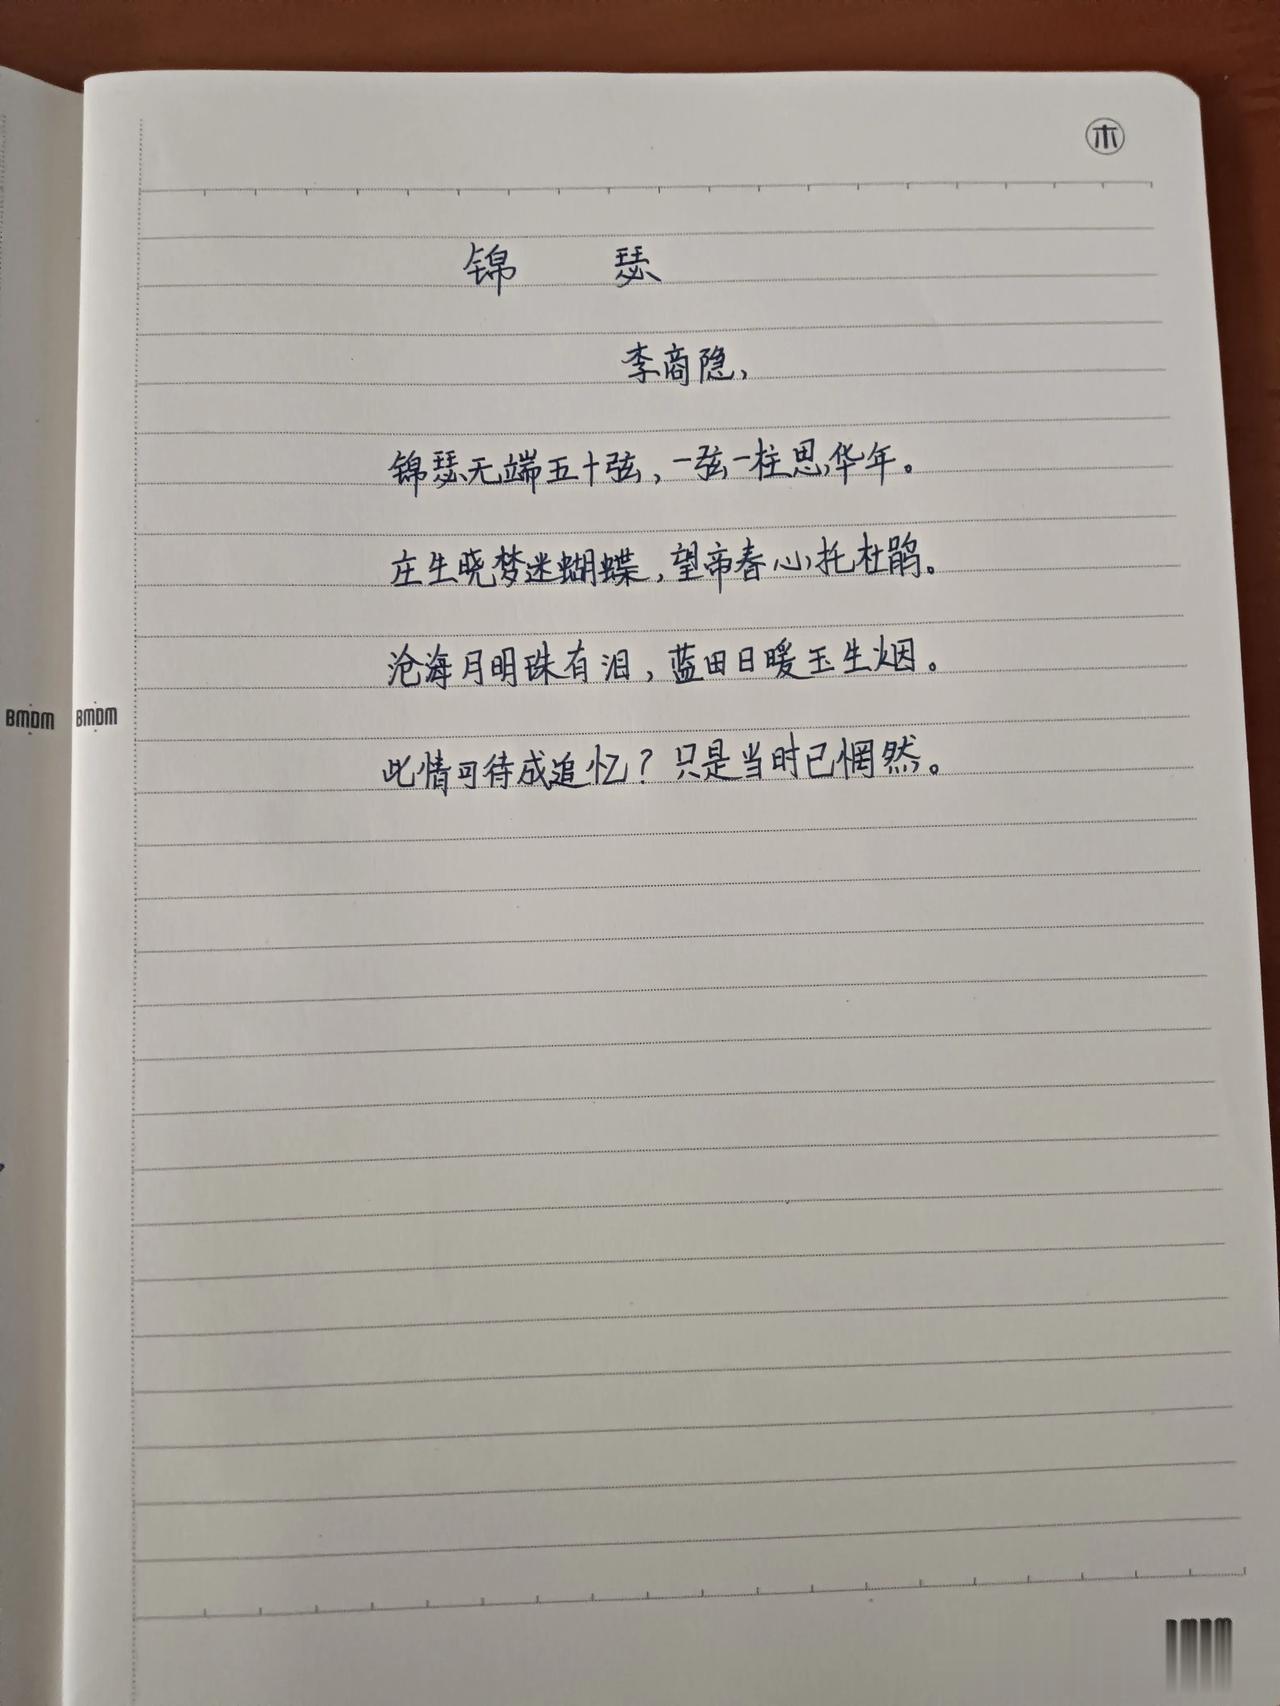 木
锦 瑟
李商隐,
锦瑟无端五十弦,一弦一柱思华年。
庄生晓梦迷蝴蝶,望帝春心托杜鹃。
沧海月明珠有泪,蓝田日暖玉生烟。
BMDM BMDM
此情可待成追忆?只是当时已惘然。
BMDM